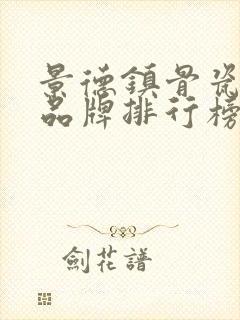 景德鎮骨瓷
品牌排行榜
劍花譜